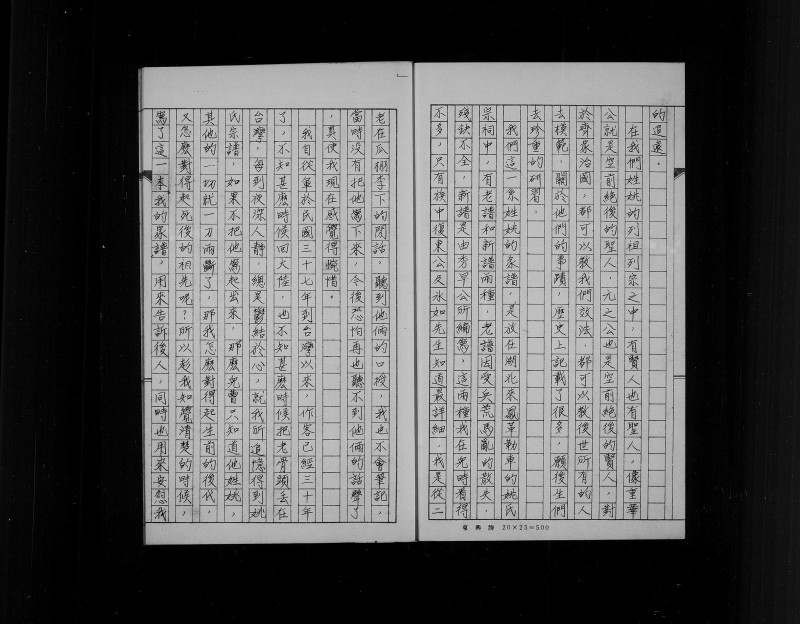 的退還。
在我們姓姚的列祖列宗之中，有賢人也有聖人，像重華
公就是空前絕後的聖人，元之公也是空前絕後的賢人，對
於齊家治國，都可以教我們效法，都可以教後世所有的人
去模範，關於他們的事蹟，歷史上記載了很多，願後生們
去珍重的研習。
我們這一系姓姚的家譜，是放在湖北來鳳革勒車的姚氏
宗祠中，有老譜和新譜兩種，老譜因受兵荒馬亂的散失，
殘缺不全，新譜是由秀早公所編寫，這兩種我在兒時看得
不多，只有族中復東公及冰如先生知道最詳細。我是從二
東海譜 20×25=500
老在瓜棚李下的閒話，聽到他倆的口授，我也不會筆記，
當時沒有把他寫下來，今後恐怕再也聽不到他倆的話聲了
，真使我現在感覺得惋惜。
我自從軍於民國三十七年到台灣以來，作客已經三十年
了，不知甚麼時候回大陸，也不知甚麼時候把老骨頭丟在
台灣，每到夜深人靜，總是鬱結於心，就我所追憶得到姚
氏宗譜，如果不把他寫起出來，那麼兒曹只知道他姓姚，
其他的一切就一刀兩斷了，那我怎麼對得起生前的後代，
又怎麼對得起死後的祖先呢？所以趁我如覺清楚的時候，
寫了這一本我的家譜，用來告訴後人，同時也用來安慰我